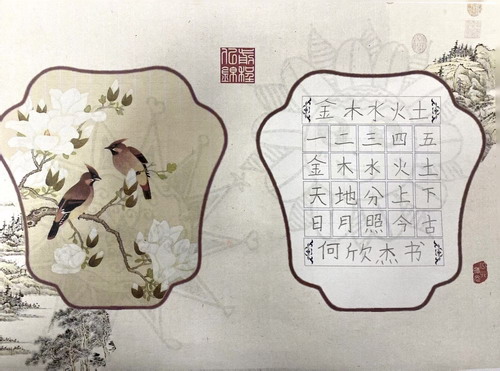 金木水火土
一二三四五
金木水火土
天地分上下
日月照今古
何欣杰书